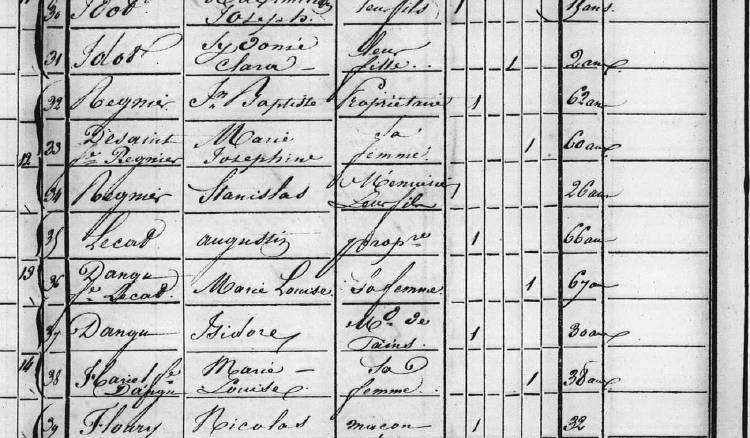 30 Idot Joseph leur fils 1
31 Idot Sydonie Clara leur fille 1 2 ans
32 Regnier Jn Baptiste Propriétaire 1 62 ans
12 33 Desaint fe Regnier Marie Josephine sa femme 1 60 ans
34 Regnier Stanislas Menuisier Leur fils 26 ans
35 Lecat augustin propre 1 66 ans
13 36 Dangu fe Lecat Marie Louise Sa femme 1 67 a
37 Dangu Isidore Md de 1 30 ans
14 38 fe Dangu Marie Louise Sa femme 1 38 ans
39 Floury Nicolas macon 1 32